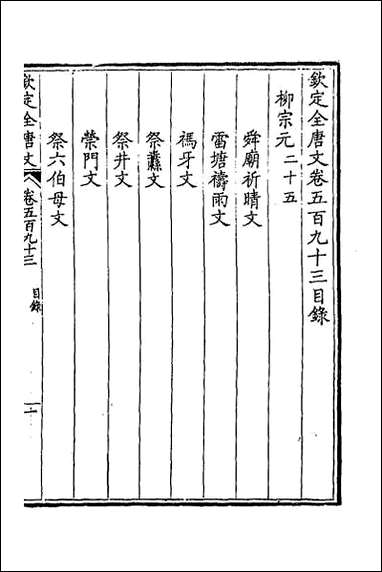 欽定全唐文卷五百九十三目錄
柳宗元二十五
舜廟祈晴文
雷塘禱雨文
禡牙文
祭纛文
祭井文
禜門文
祭六伯母文
欽定全唐文
卷五百九十三
目錄
一